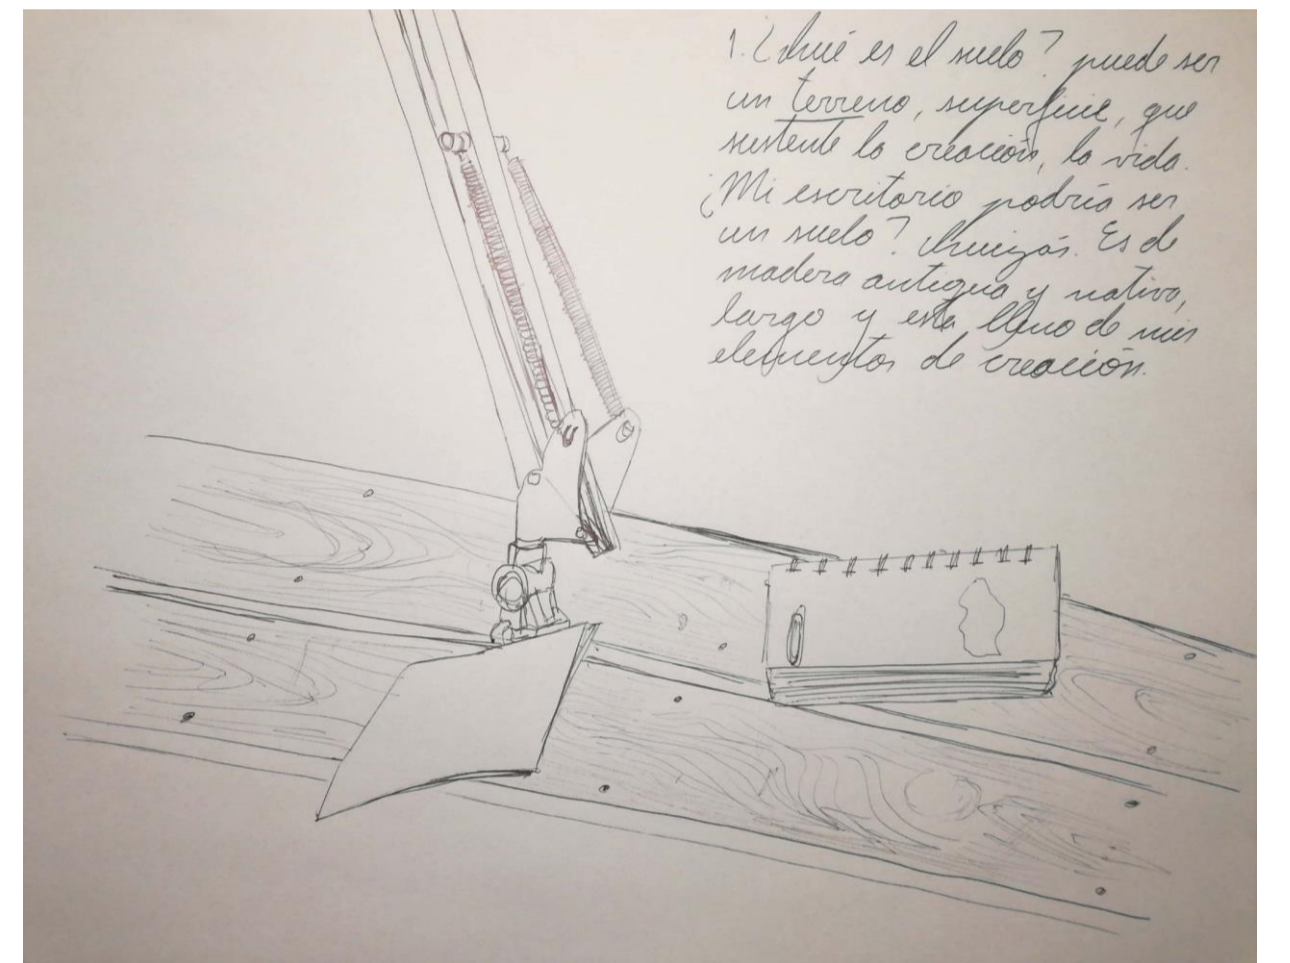 1. ¿Qué es el suelo? puede ser
un terreno, superficie, que
sustente la creación, la vida.
¿Mi escritorio podría ser
un suelo? Quizás. Es de
madera antigua y nativa,
largo y está lleno de mis
elementos de creación.